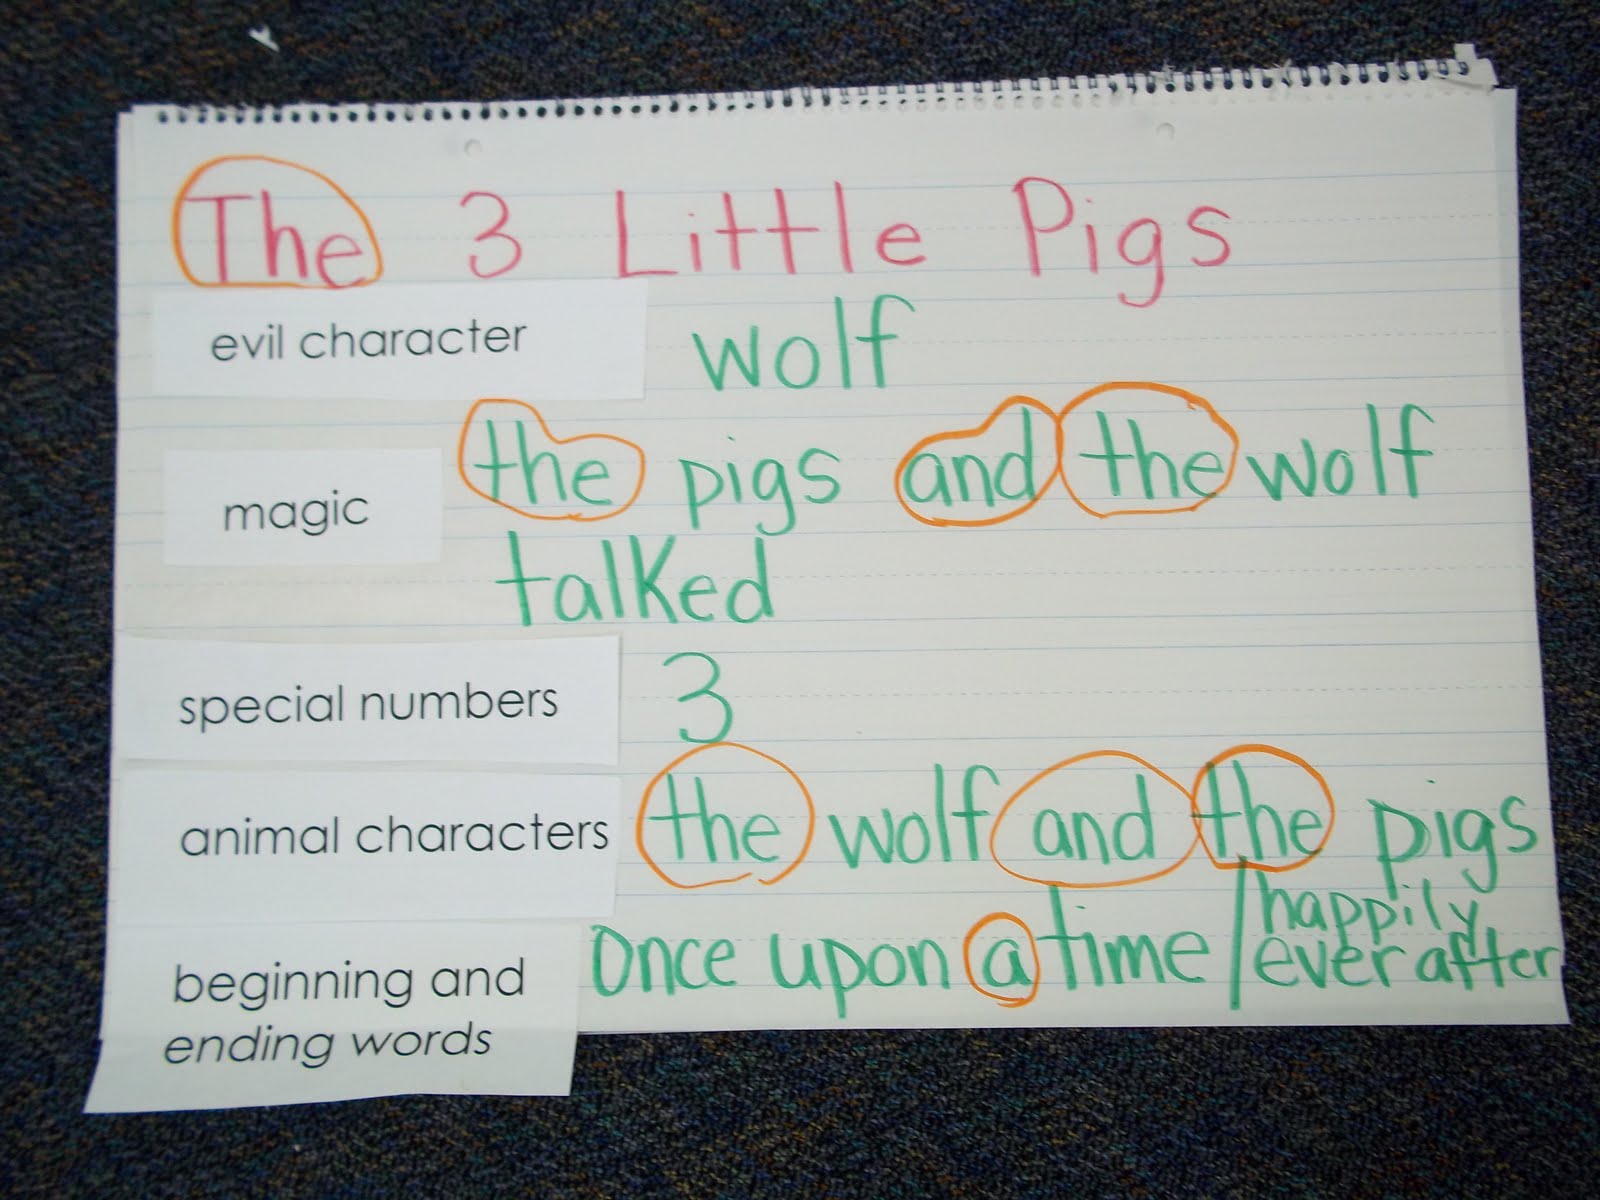 The 3 Little Pigs
evil character wolf
magic the pigs and the wolf
talked
special numbers 3
animal characters the wolf and the pigs
beginning and Once upon a time / happily
ever after
ending words